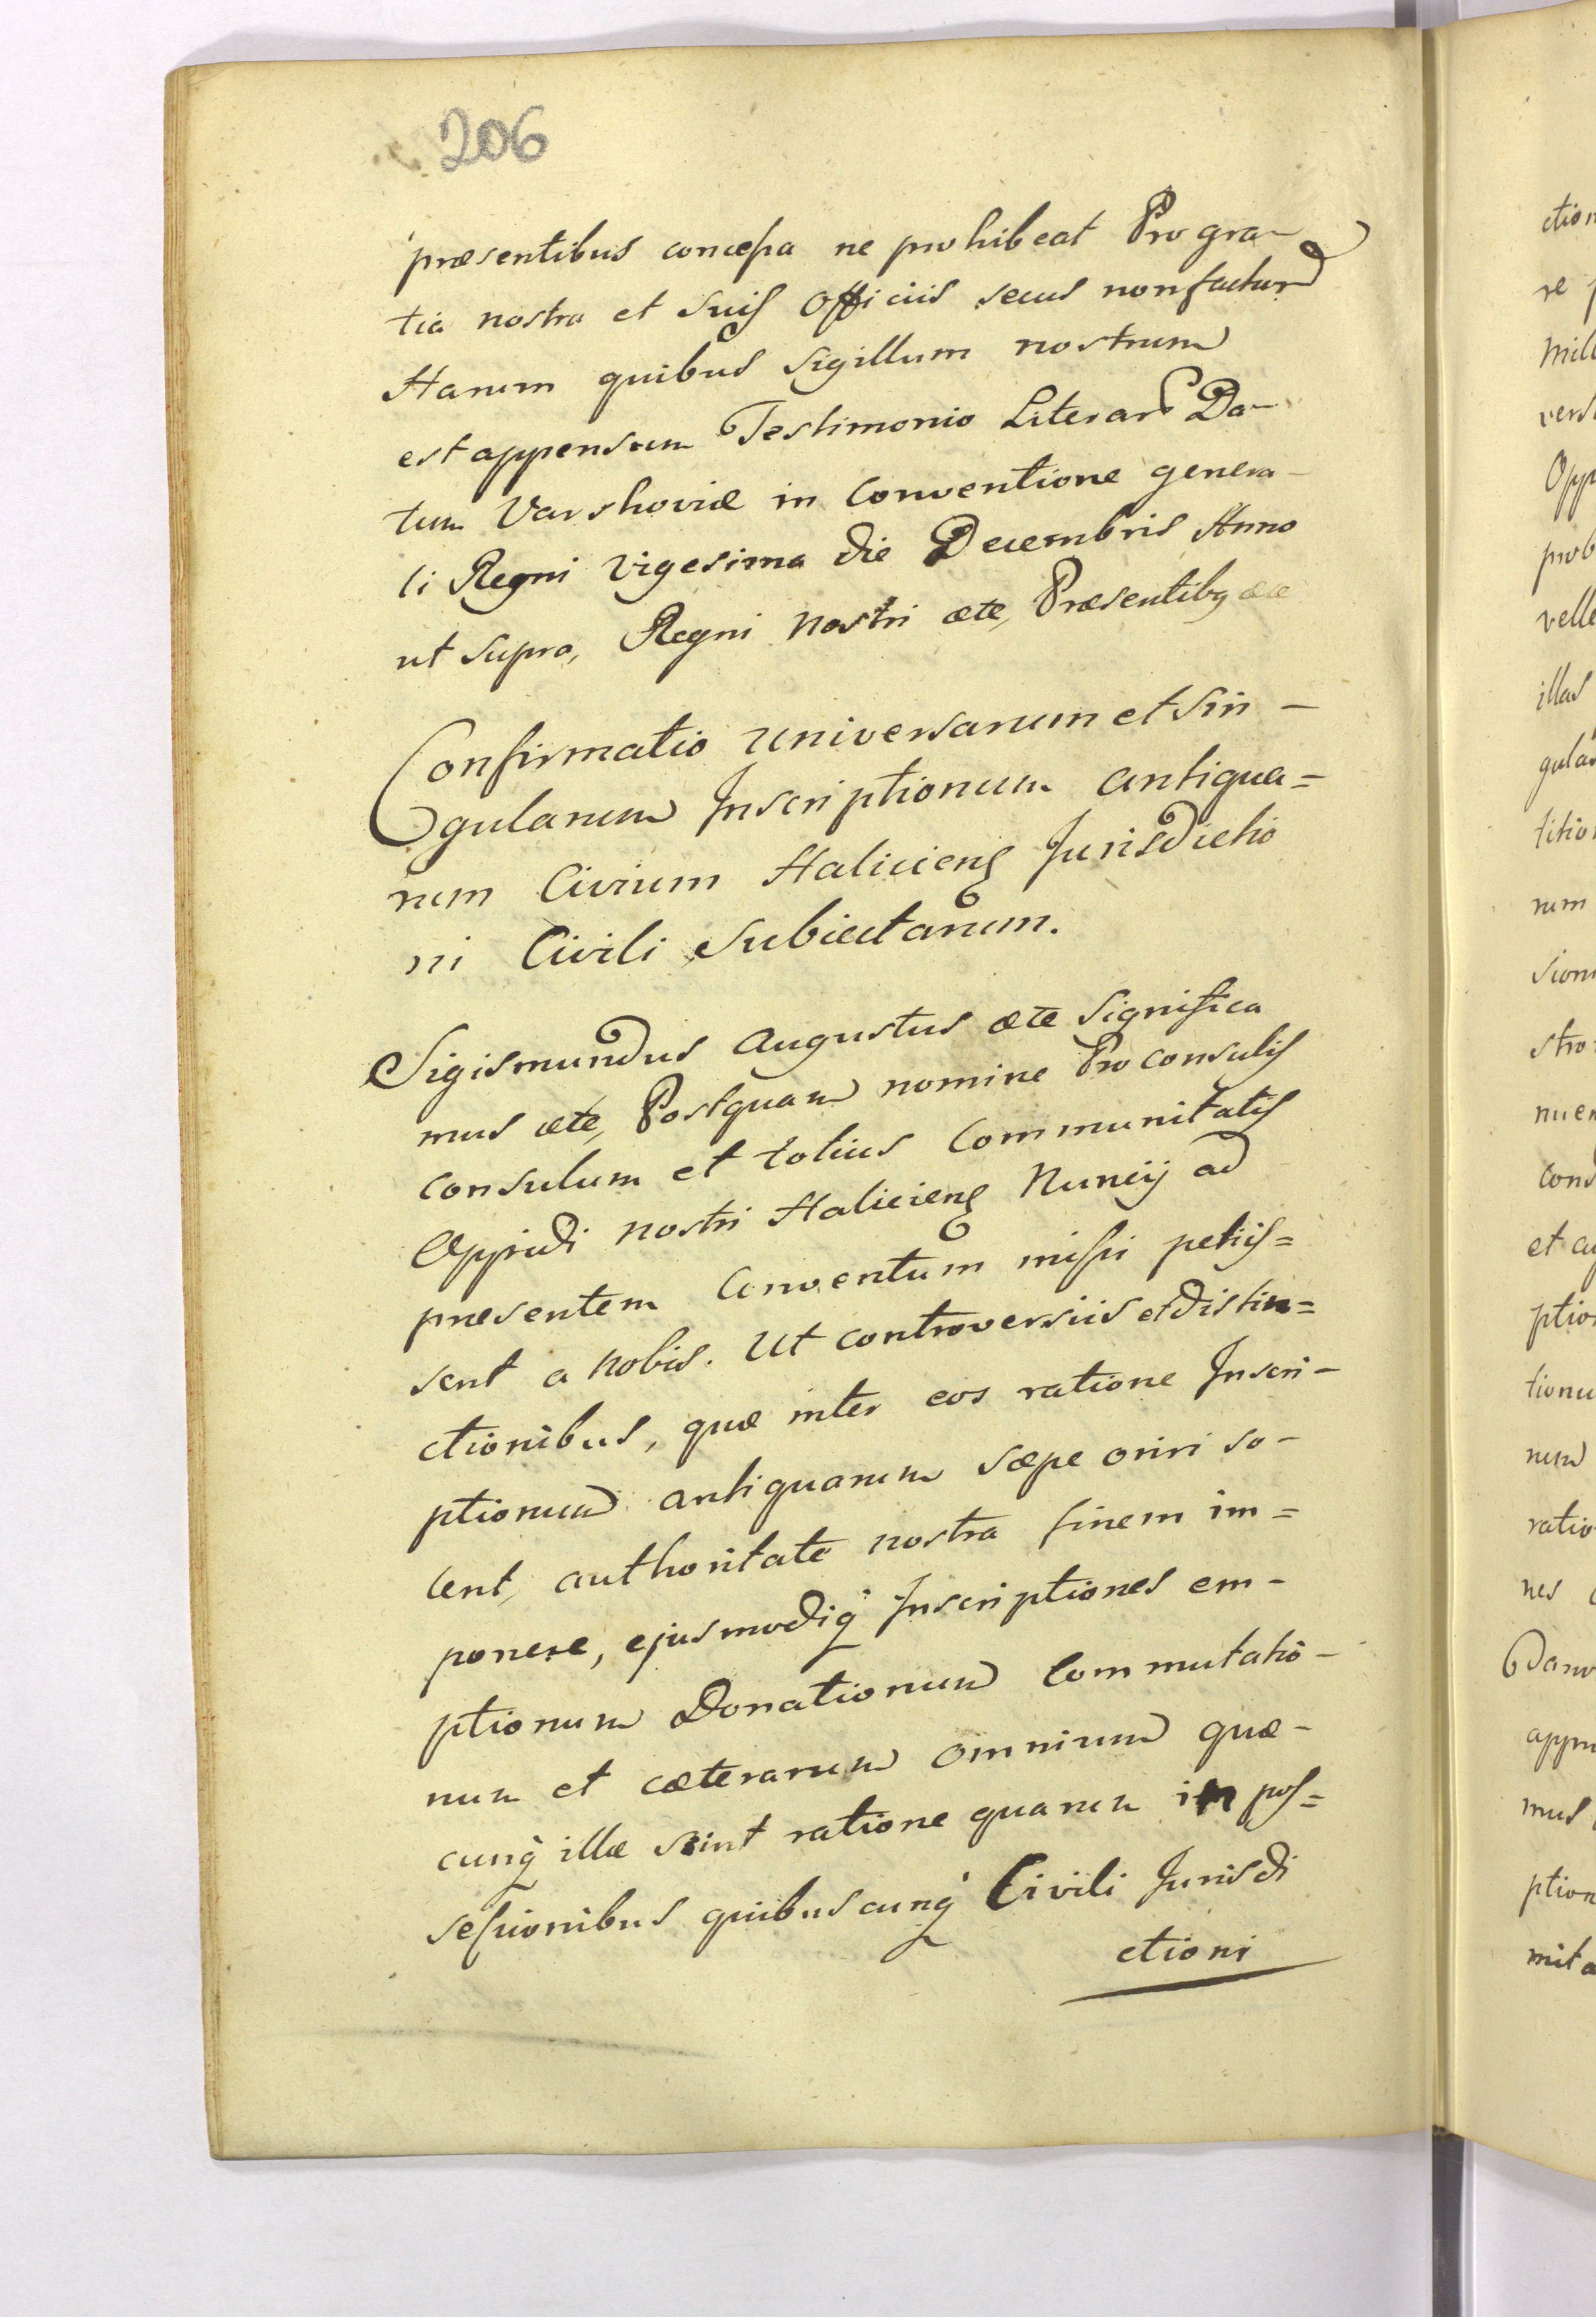 206
præsentibus concessa ne prohibeat Pro gra-
tia nostra et suis Officiis secus non factur
Harum quibus Sigillum nostrum
est appensum Testimonio Literar Da-
tum Varshoviæ in Conventione genera-
li Regni Vigesima die Decembris Anno
ut supra, Regni Nostri ætc, Præsentibq
Confirmatio universarum et sin-
gularum Inscriptionum antiqua=
rum Civium Haliciens Jurisdictio
ni Civili Subiectarum.
Sigismundus Augustus ætc Significa
mus ætc, Postquam nomine Proconsulis
Consulum et totius Communitatis
Oppidi nostri Haliciens Nuncij ad
præsentem Conventum missi petiis=
sent a nobis. Ut controversiis et distin=
ctionibus, quæ inter eos ratione Inscri-
ptionum antiquarum sæpe oriri so-
lent, authoritate nostra finem im=
ponere, ejusmodiq Inscriptiones em-
ptionum Donationum Commutatio-
num et cæterarum omnium quæ-
cunq illæ sint ratione quarum in pos=
sessionibus quibuscunq Civili Jurisdi
ctioni
ction
re
vers
Opp
prob
velle
illas
gula
titio
rum
stro
et
ptio
tionu
rum
ratio
nes
mus
ption